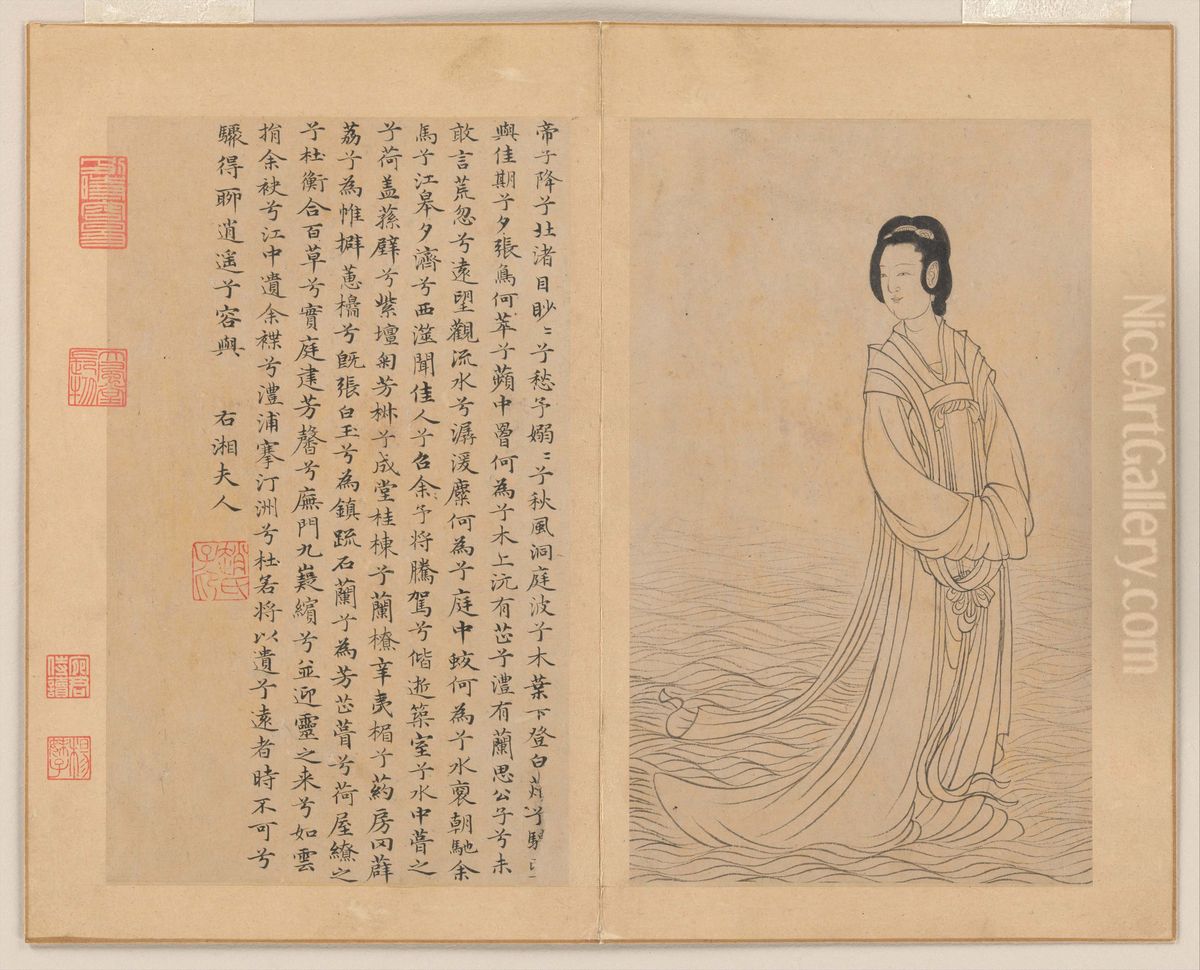 帝子降兮北渚目眇〻兮愁予嫋〻兮秋風洞庭波兮木葉下登白薠兮騁
與佳期兮夕張鳥何萃兮蘋中罾何為兮木上沅有芷兮澧有蘭思公子兮未
敢言荒忽兮遠望觀流水兮潺湲麋何為兮庭中蛟何為兮水裔朝馳余
馬兮江皋夕濟兮西澨聞佳人兮召余予將騰駕兮偕逝築室兮水中葺之
兮荷盖蓀壁兮紫壇匊芳椒兮成堂桂棟兮蘭橑辛夷楣兮葯房罔薜
荔兮為帷擗蕙櫋兮既張白玉兮為鎮疏石蘭兮為芳芷葺兮荷屋繚之
兮杜衡合百草兮實庭建芳馨兮廡門九嶷繽兮並迎靈之来兮如雲
捐余袂兮江中遺余褋兮澧浦搴汀洲兮杜若將以遺兮遠者時不可兮
驟得聊逍遙兮容與 右湘夫人
趙氏子昂
NiceArtGallery.com